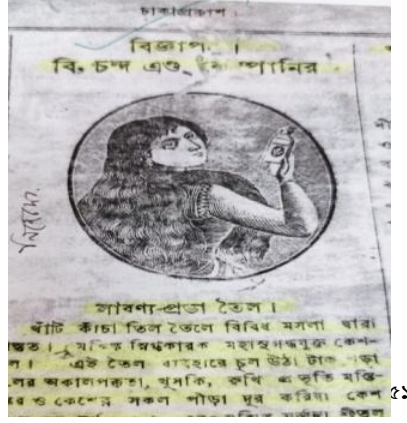 ঢাকাপ্রকাশ।
বিজ্ঞাপ ।
বি, চন্দ এণ্ড পানির
লাবণ্য-প্রভা তৈল।
খাঁটি কাঁচা তিল তৈলে বিবিধ মসলা দ্বারা
স্তুত। স্নিগ্ধকারক মহাসুগন্ধযুক্ত কেশ-
ল। এই তৈল ব্যবহারে চুল উঠা টাক পড়া
লের অকালপক্কতা, খুসকি, রুখি প্রভৃতি মস্তি-
ের ও কেশের সকল পীড়া দূর করিয়া কেশ
৫১
শীতল